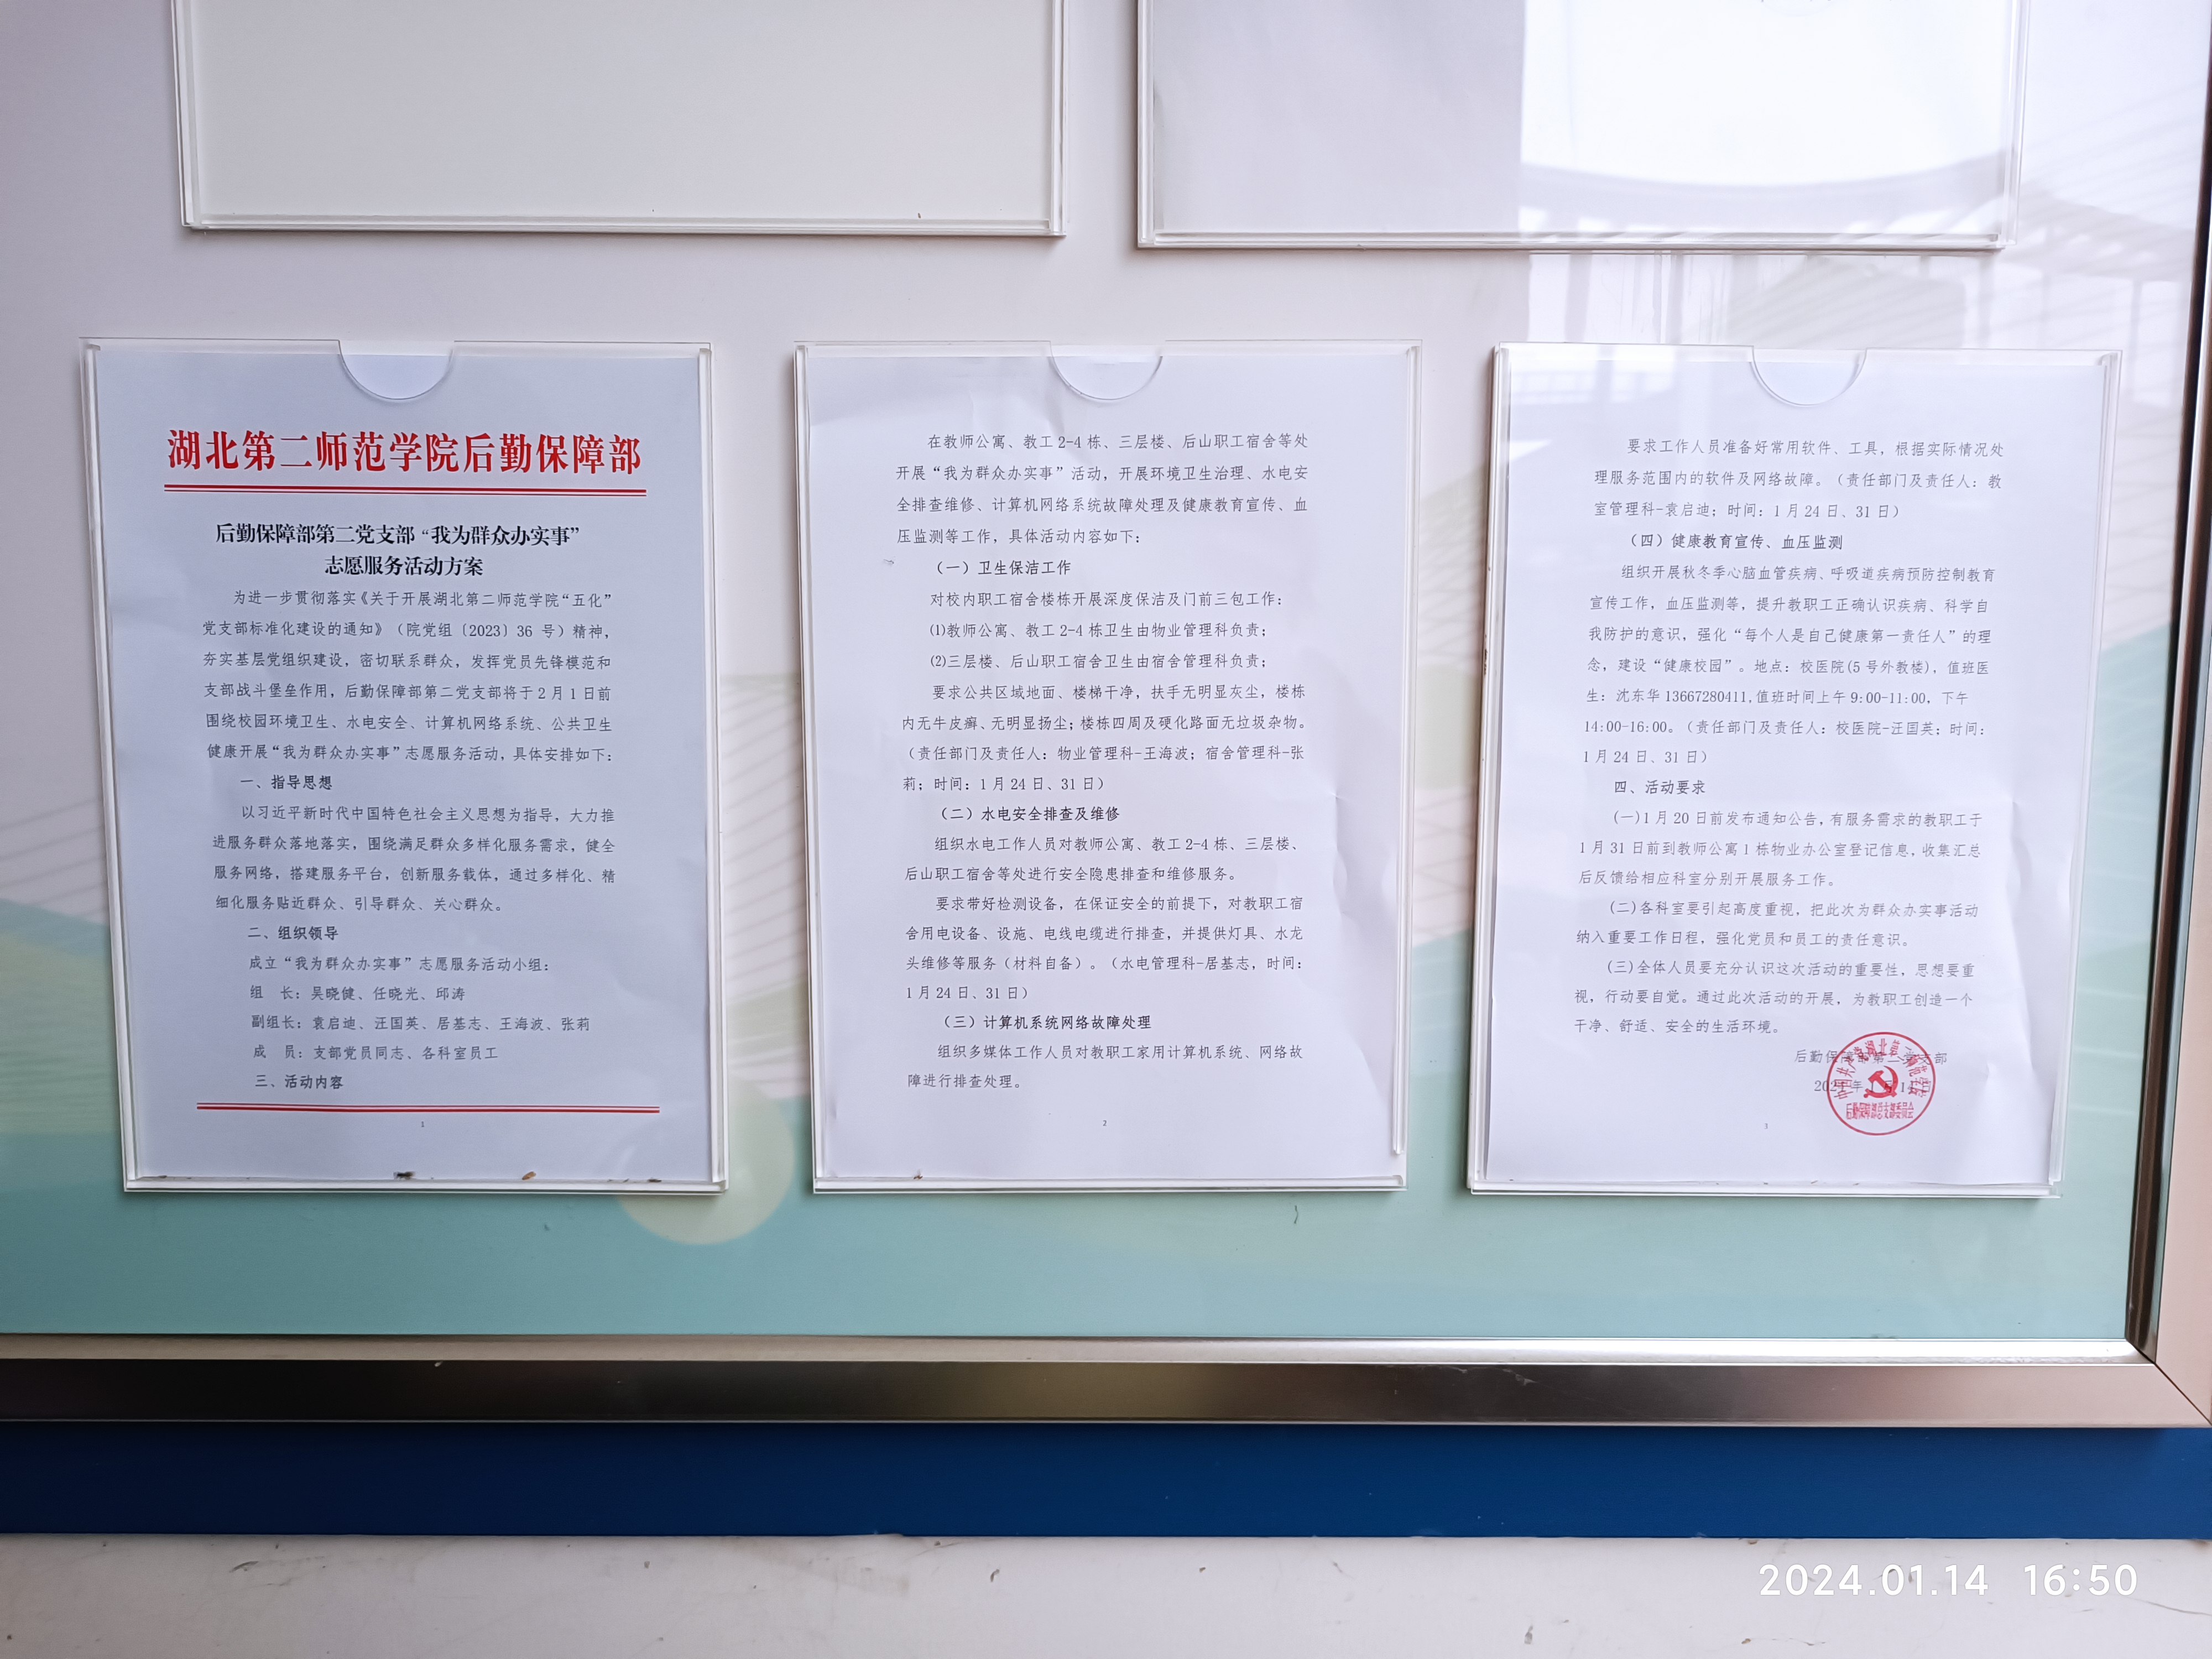 湖北第二师范学院后勤保障部
后勤保障部第二党支部“我为群众办实事”
志愿服务活动方案
为进一步贯彻落实《关于开展湖北第二师范学院“五化”
党支部标准化建设的通知》（院党组〔2023〕36 号）精神，
夯实基层党组织建设，密切联系群众，发挥党员先锋模范和
支部战斗堡垒作用，后勤保障部第二党支部将于 2 月 1 日前
围绕校园环境卫生、水电安全、计算机网络系统、公共卫生
健康开展“我为群众办实事”志愿服务活动，具体安排如下：
一、指导思想
以习近平新时代中国特色社会主义思想为指导，大力推
进服务群众落地落实，围绕满足群众多样化服务需求，健全
服务网络，搭建服务平台，创新服务载体，通过多样化、精
细化服务贴近群众、引导群众、关心群众。
二、组织领导
成立“我为群众办实事”志愿服务活动小组：
组　长：吴晓健、任晓光、邱涛
副组长：袁启迪、汪国英、居基志、王海波、张莉
成　员：支部党员同志、各科室员工
三、活动内容
1
在教师公寓、教工 2-4 栋、三层楼、后山职工宿舍等处
开展“我为群众办实事”活动，开展环境卫生治理、水电安
全排查维修、计算机网络系统故障处理及健康教育宣传、血
压监测等工作，具体活动内容如下：
（一）卫生保洁工作
对校内职工宿舍楼栋开展深度保洁及门前三包工作：
⑴教师公寓、教工 2-4 栋卫生由物业管理科负责；
⑵三层楼、后山职工宿舍卫生由宿舍管理科负责；
要求公共区域地面、楼梯干净，扶手无明显灰尘，楼栋
内无牛皮癣、无明显扬尘；楼栋四周及硬化路面无垃圾杂物。
（责任部门及责任人：物业管理科-王海波；宿舍管理科-张
莉；时间：1 月 24 日、31 日）
（二）水电安全排查及维修
组织水电工作人员对教师公寓、教工 2-4 栋、三层楼、
后山职工宿舍等处进行安全隐患排查和维修服务。
要求带好检测设备，在保证安全的前提下，对教职工宿
舍用电设备、设施、电线电缆进行排查，并提供灯具、水龙
头维修等服务（材料自备）。（水电管理科-居基志，时间：
1 月 24 日、31 日）
（三）计算机系统网络故障处理
组织多媒体工作人员对教职工家用计算机系统、网络故
障进行排查处理。
2
要求工作人员准备好常用软件、工具，根据实际情况处
理服务范围内的软件及网络故障。（责任部门及责任人：教
室管理科-袁启迪；时间：1 月 24 日、31 日）
（四）健康教育宣传、血压监测
组织开展秋冬季心脑血管疾病、呼吸道疾病预防控制教育
宣传工作，血压监测等，提升教职工正确认识疾病、科学自
我防护的意识，强化“每个人是自己健康第一责任人”的理
念，建设“健康校园”。地点：校医院(5 号外教楼)，值班医
生：沈东华 13667280411,值班时间上午 9:00-11:00，下午
14:00-16:00。（责任部门及责任人：校医院-汪国英；时间：
1 月 24 日、31 日）
四、活动要求
(一)1 月 20 日前发布通知公告，有服务需求的教职工于
1 月 31 日前到教师公寓 1 栋物业办公室登记信息，收集汇总
后反馈给相应科室分别开展服务工作。
(二)各科室要引起高度重视，把此次为群众办实事活动
纳入重要工作日程，强化党员和员工的责任意识。
(三)全体人员要充分认识这次活动的重要性，思想要重
视，行动要自觉。通过此次活动的开展，为教职工创造一个
干净、舒适、安全的生活环境。
后勤保障部第二党支部
中国共产党湖北第二师范学院
后勤保障部总支部委员会
3
2024.01.14 16:50